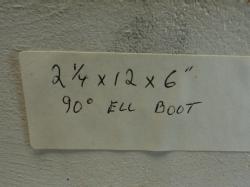 2 1/4 x 12 x 6"
90° ELL BOOT